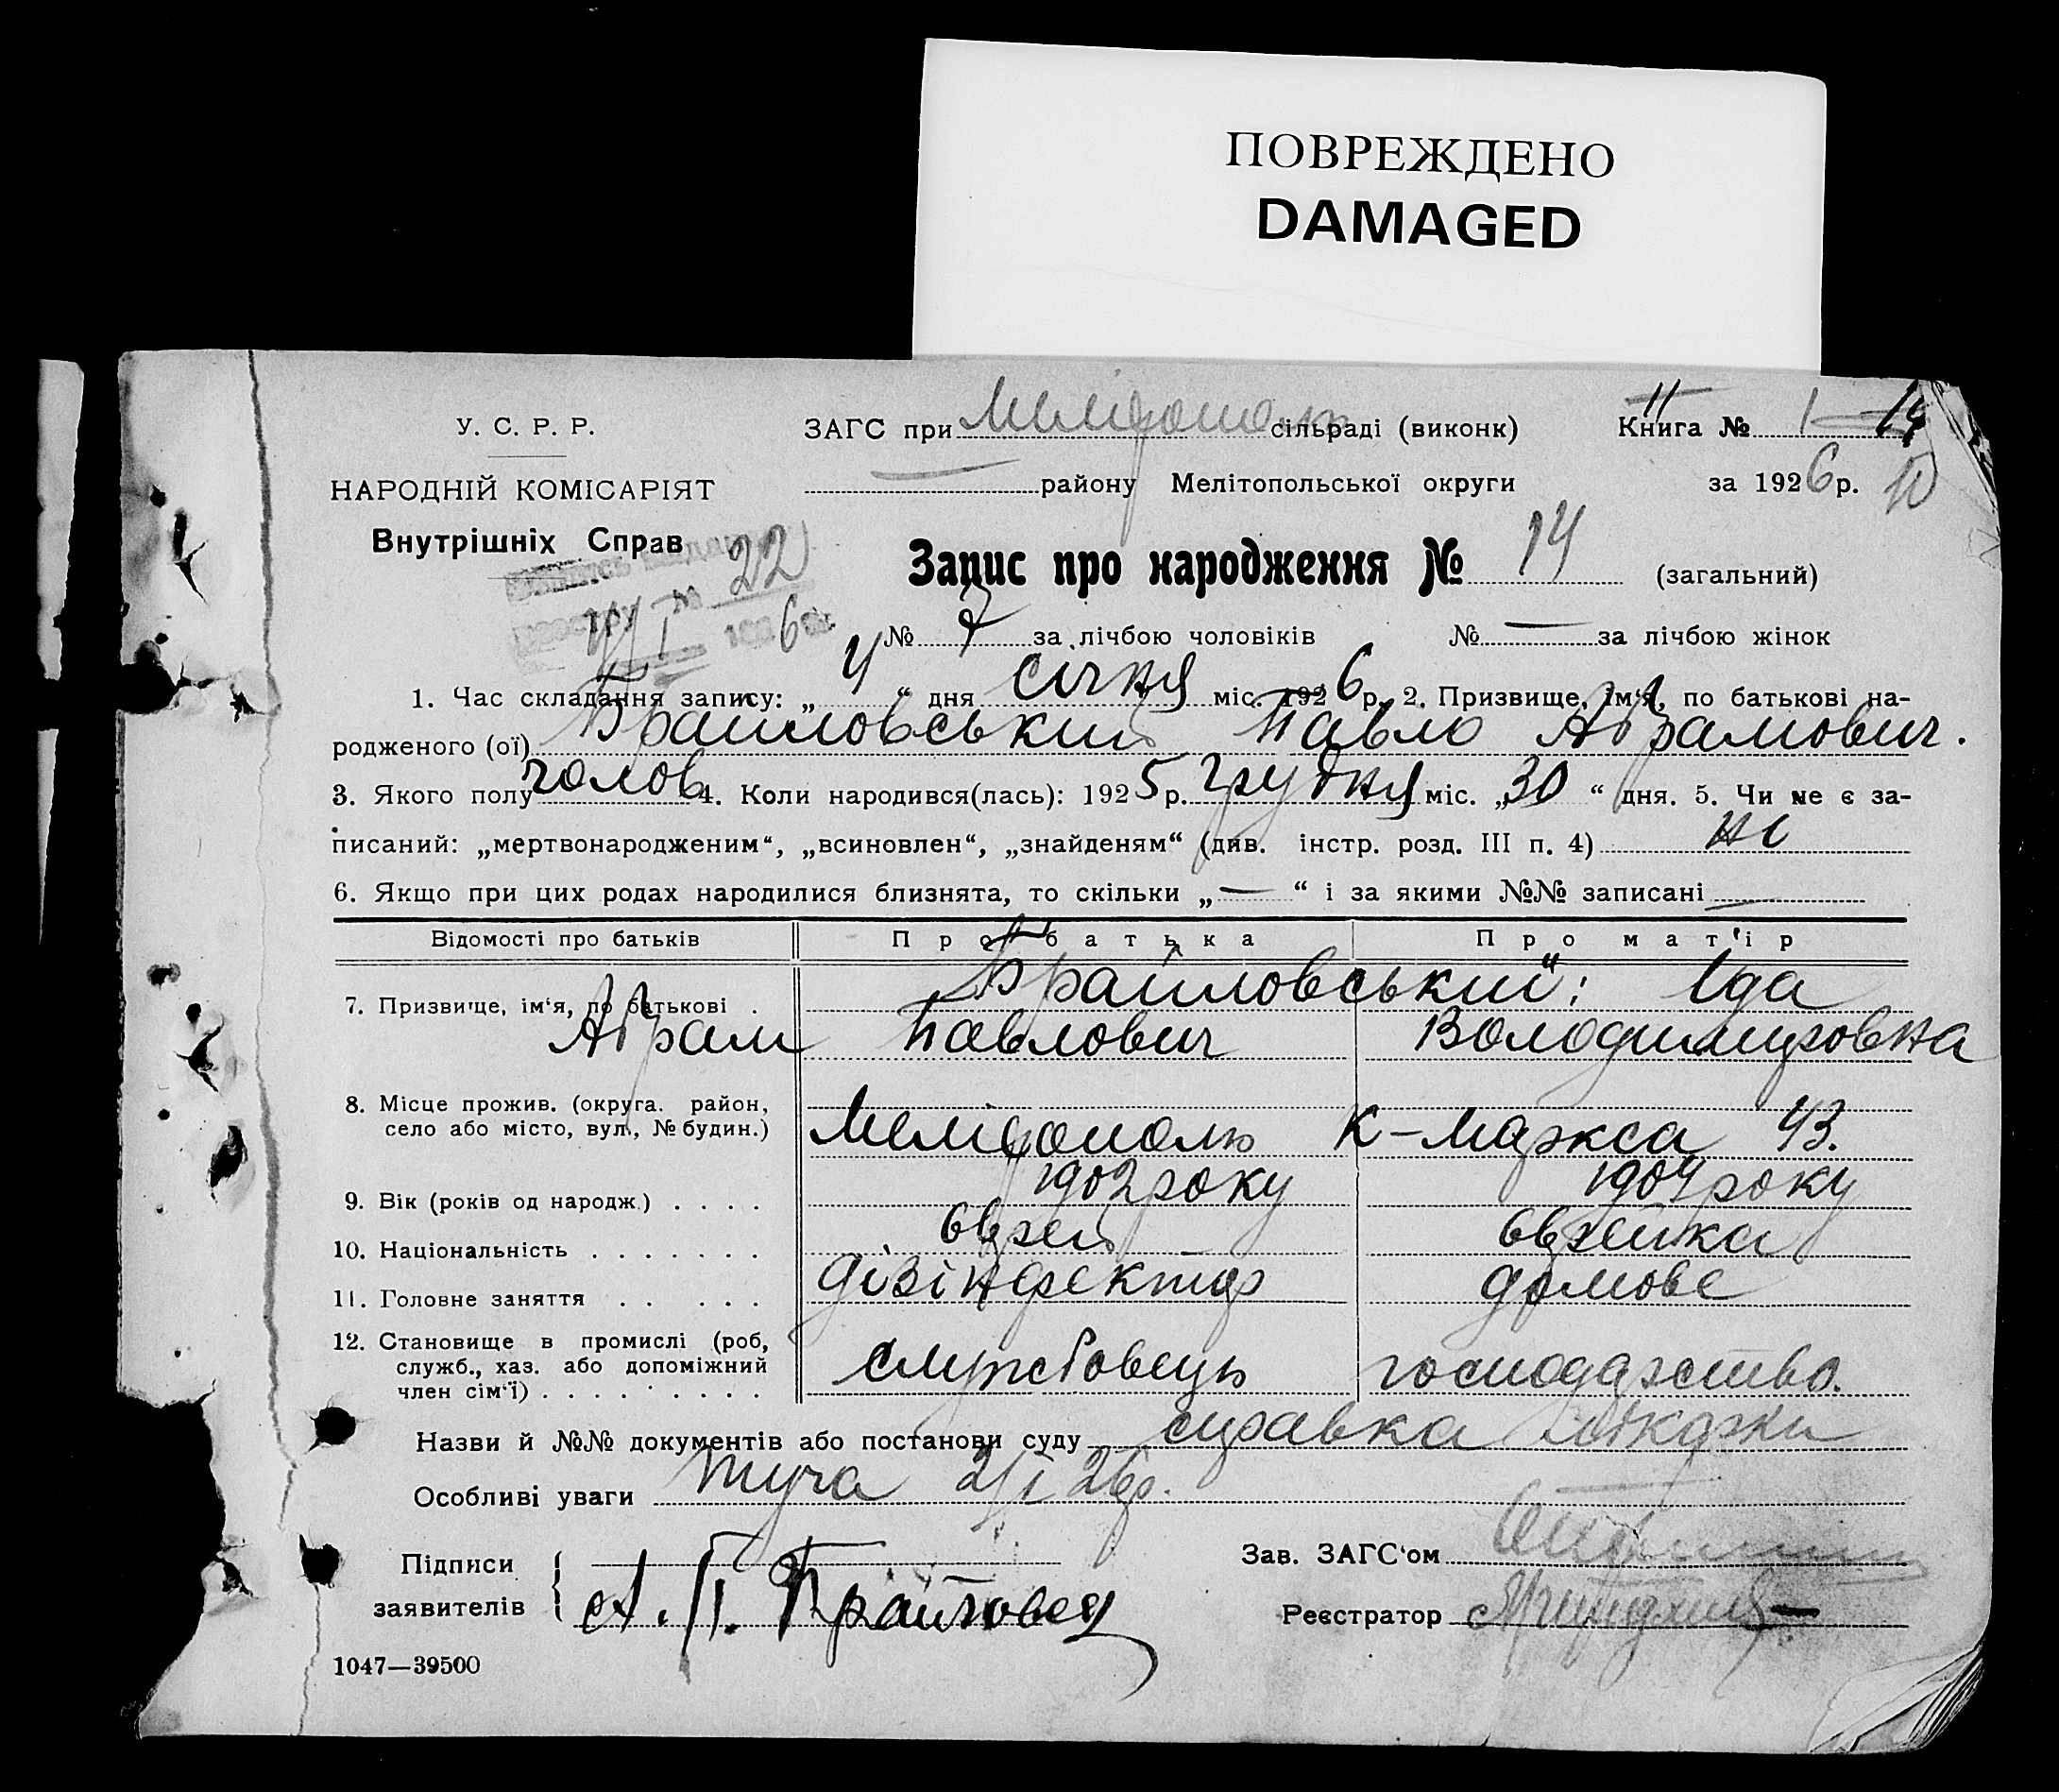 ПОВРЕЖДЕНО
DAMAGED
У. С. Р. Р.
НАРОДНІЙ КОМІСАРІЯТ
Внутрішніх Справ
22
6
ЗАГС при Мелітополь сільраді (виконк)
Книга № 11 1 14
— району Мелітопольської округи
за 1926 р. 10
Запис про народження № 14 (загальний)
№ 7 за лічбою чоловіків № — за лічбою жінок
1. Час складання запису: „ 4 “ дня січня міс. 1926 р. 2. Призвище, ім'я, по батькові на-
родженого (ої) Браїловський Павло Абрамович.
3. Якого полу чолов 4. Коли народився(лась): 1925 р. грудня міс. „ 30 “ дня. 5. Чи не є за-
писаний: „мертвонародженим“, „всиновлен“, „знайденям“ (див. інстр. розд. III п. 4) ні
6. Якщо при цих родах народилися близнята, то скільки „ — “ і за якими №№ записані —
Відомості про батьків Про батька Про мат'ір
7. Призвище, ім‘я, по батькові . Браїловський: Іда
Абрам Павлович Володимировна
8. Місце прожив. (округа. район,
село або місто, вул., № будин.) Мелітополь К-Маркса 43.
9. Вік (років од народж.) . . . . 1902 року 1904 року
10. Національність . . . . . . . євреи євреика
11. Головне заняття . . . . . дізінфектор домове
12. Становище в промислі (роб,
служб., хаз. або допоміжний
член сім‘ї) . . . . . . . . . . службовець господарство.
Назви й №№ документів або постанови суду справка лікарки
Особливі уваги 2/I 26р.
Підписи
заявителів
А. П. Браїловск
Зав. ЗАГС‘ом
Реєстратор
1047—39500